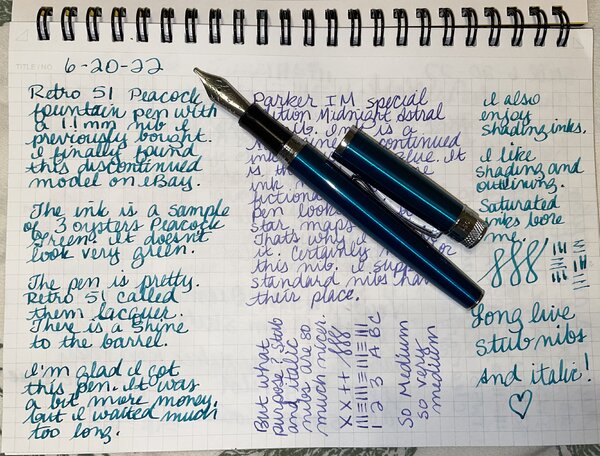 TITLE / NO.
6-20-22
Retro 51 Peacock
fountain pen with
a 1.1mm nib I
previously bought.
I finally found
this discontinued
model on eBay.
The ink is a sample
of 3 oysters Peacock
Green. It doesn't
look very green.
The pen is pretty.
Retro 51 called
them lacquer.
There is a shine
to the barrel.
I'm glad I got
this pen. It was
a bit more money,
but I waited much
too long.
Parker IM special
Edition Midnight Astral
is a
discontinued
ink
blue. It
is th
ink
fiction
pen look
star maps
Thats why
it. Certainly
or
this nib. I
standard nibs ha
their place.
But what
purpose? Stub
and italic
nibs are so
much nicer.
X X + +
1 2 3 A B C
So Medium
So very
medium
I also
enjoy
shading inks.
I like
shading and
outlining.
Saturated
inks bore
me.
Long live
stub nibs
and italic!